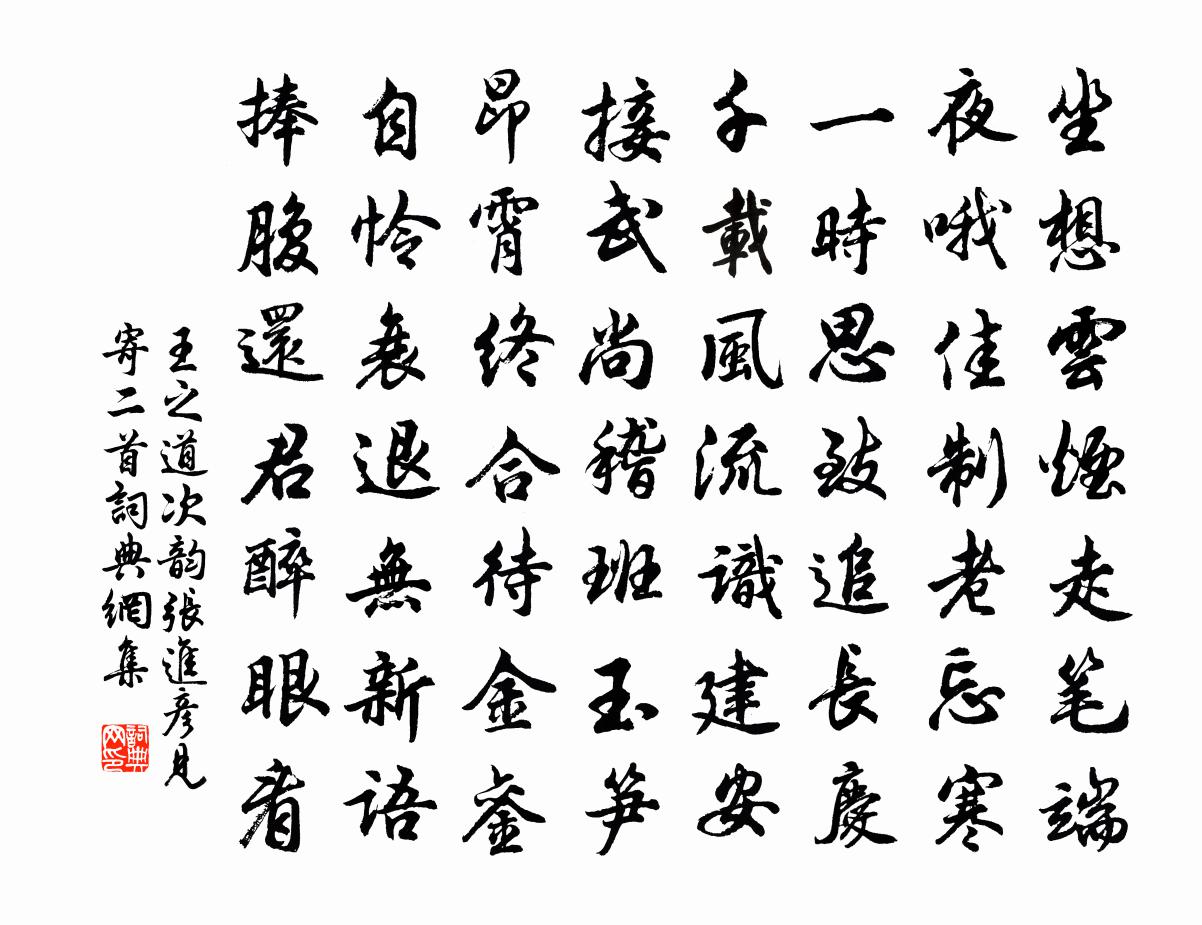 坐想雲煙走笔端
夜哦佳制老忘寒
一時思致追長慶
千載風流識建安
接武尚稽班玉笋
昂霄終合待金銮
自怜衰退無新語
捧腹還君醉眼看
王之道次韵張進彦見
寄二首詞典網集
詞典网印